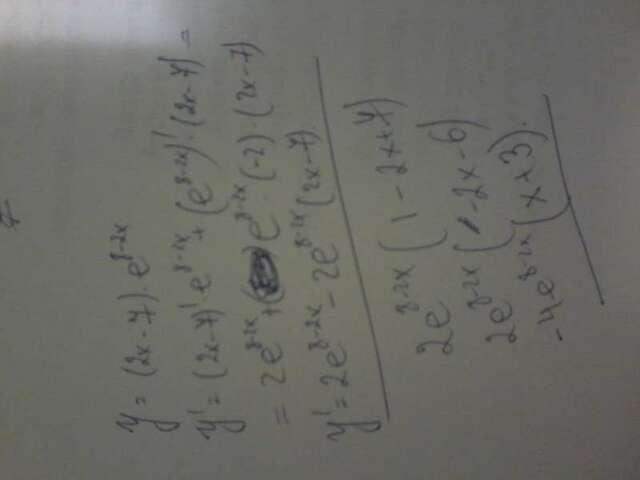 y = (2x-7)·e^{8-2x}
y' = (2x-7)'·e^{8-2x} + (e^{8-2x})'·(2x-7) =
= 2e^{8-2x} + e^{8-2x}·(-2)·(2x-7)
y' = 2e^{8-2x} - 2e^{8-2x}(2x-7)
2e^{8-2x}(1-2x+7)
2e^{8-2x}(-2x-6)
-4e^{8-2x}(x+3).